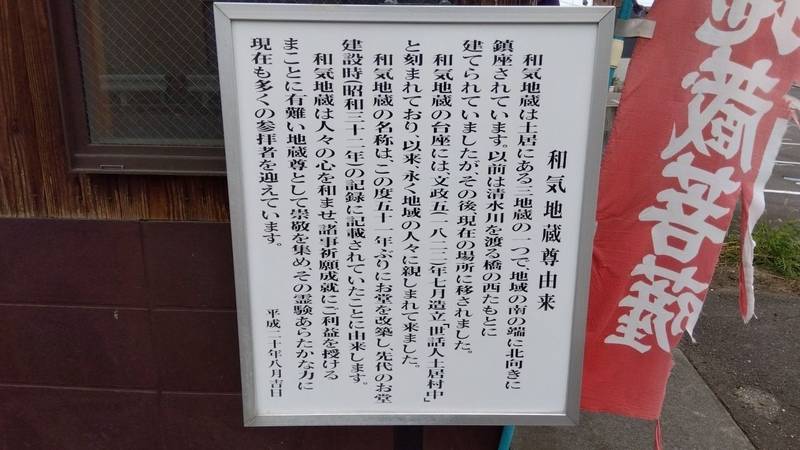 和気地蔵尊由来
和気地蔵は土居にある三地蔵の一つで、地域の南の端に北向きに
鎮座されています。以前は清水川を渡る橋の西たもとに
建てられていましたが、その後、現在の場所に移されました。
和気地蔵の台座には、文政五(一八二二)年七月造立「世話人土居村中」
と刻まれており、以来、永く地域の人々に親しまれて来ました。
和気地蔵の名称は、この度五十一年ぶりにお堂を改築し、先代のお堂
建設時(昭和三十二年)の記録に記載されていたことに由来します。
和気地蔵は人々の心を和ませ、諸事祈願成就にご利益を授ける
まことに有難い地蔵尊として崇敬を集め、その霊験あらたかな力に
現在も多くの参拝者を迎えています。
平成二十年八月吉日
地蔵菩薩